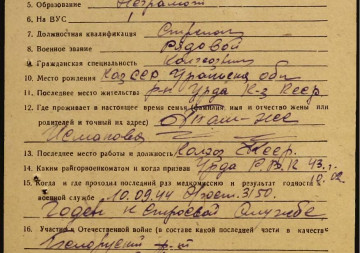 5. Образование Неграмот
6. На ВУС 1
7. Должностная квалификация Стрелок
8. Военное звание Рядовой
9. Гражданская специальность Колхозник
10. Место рождения КазССР Уральска обл
11. Последнее место жительства рн Урда К-з
12. Где проживает в настоящее время семья (фамилия, имя и отчество жены или
родителей и точный их адрес)
Исмакова
13. Последнее место работы и должность Колхоз
14. Каким райгорвоенкоматом и когда призван Урда РВК 43
15. Когда и где проходил последний раз медкомиссию и результат годности к
военной службе 10.09.44 3150.
Годен к строевой службе
16. Участие в Отечественной войне (в составе какой последней части в качест
Белорусский